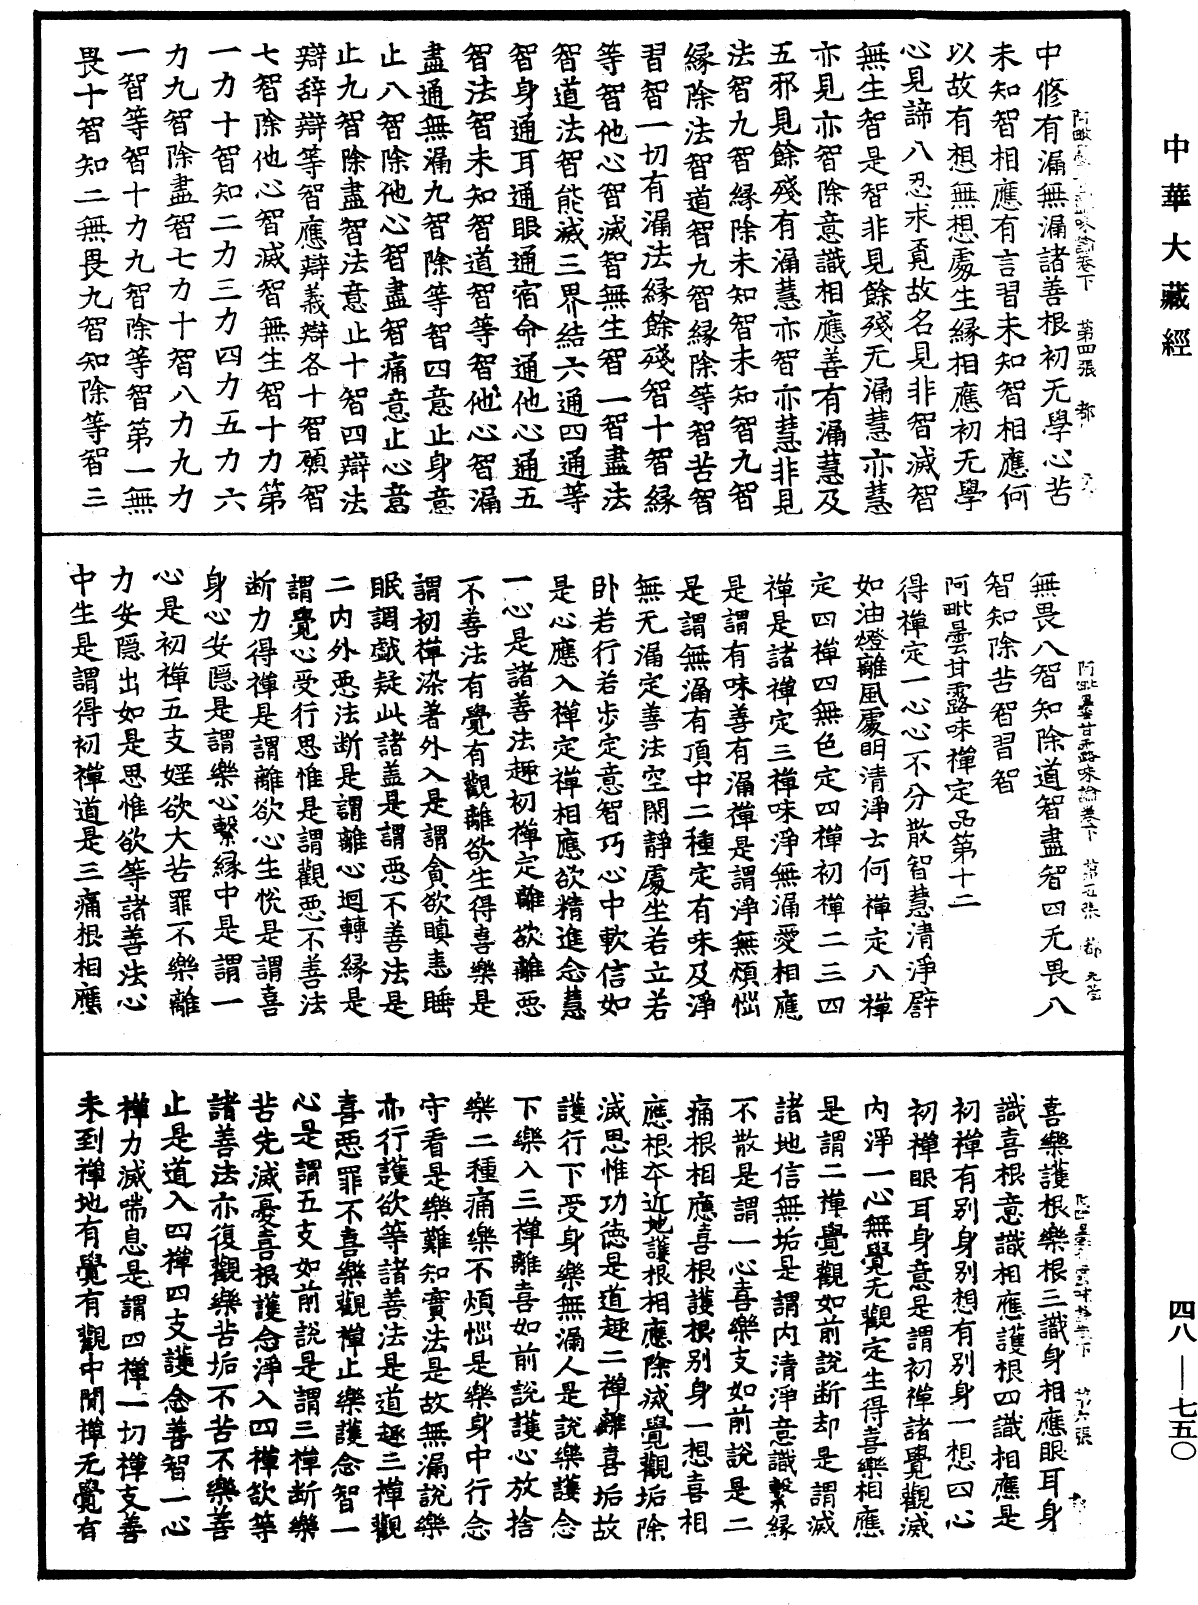 中華大藏經
中修有漏無漏諸善根初无學心苦
未知智相應有言習未知智相應何
以故有想無想處生緣相應初无學
心見諦八忍求覓故名見非智滅智
無生智是智非見餘殘无漏慧亦慧
亦見亦智除意識相應善有漏慧及
五邪見餘殘有漏慧亦智亦慧非見
法智九智緣除未知智未知智九智
緣除法智道智九智緣除等智苦智
習智一切有漏法緣餘殘智十智緣
等智他心智滅智無生智一智盡法
智道法智能滅三界結六通四通等
智身通耳通眼通宿命通他心通五
智法智未知智道智等智他心智漏
盡通無漏九智除等智四意止身意
止八智除他心智盡智痛意止心意
止九智除盡智法意止十智四辯法
辯辞辯等智應辯義辯各十智願智
七智除他心智滅智無生智十力第
一力十智知二力三力四力五力六
力九智除盡智七力十智八力九力
一智等智十力九智除等智第一無
畏十智知二無畏九智知除等智三
無畏八智知除道智盡智四无畏八
智知除苦智習智
阿毗曇甘露味禪定品第十二
得禪定一心心不分散智慧清淨譬
如油燈離風處明清淨士何禪定八禪
定四禪四無色定四禪初禪二三四
禪是諸禪定三禪味淨無漏愛相應
是謂有味善有漏禪是謂淨無煩惱
是謂無漏有頂中二種定有味及淨
無无漏定善法空閑靜處坐若立若
卧若行若步定意智巧心中軟信如
是心應入禪定禪相應欲精進念慧
一心是諸善法趣初禪定離欲離惡
不善法有覺有觀離欲生得喜樂是
謂初禪染著外入是謂貪欲瞋恚睡
眠調戲疑此諸盖是謂惡不善法是
二內外惡法斷是謂離心迴轉緣是
謂覺心受行思惟是謂觀惡不善法
断力得禪是謂離欲心生悅是謂喜
身心安隱是謂樂心繫緣中是謂一
心是初禪五支婬欲大苦罪不樂離
力安隱出如是思惟欲等諸善法心
中生是謂得初禪道是三痛根相應
喜樂護根樂根三識身相應眼耳身
識喜根意識相應護根四識相應是
初禪有別身別想有別身一想四心
初禪眼耳身意是謂初禪諸覺觀滅
內淨一心無覺无觀定生得喜樂相應
是謂二禪覺觀如前說断却是謂滅
諸地信無垢是謂内清淨意識繫緣
不散是謂一心喜樂支如前說是二
痛根相應喜根護根別身一想喜相
應根夲近地護根相應除滅覺觀垢除
滅思惟功徳是道趣二禪離喜垢故
護行下受身樂無漏人是說樂護念
下樂入三禪離喜如前說護心放捨
樂二種痛樂不煩惱是樂身中行念
守看是樂難知實法是故無漏說樂
亦行護欲等諸善法是道趣三禪觀
喜惡罪不喜樂觀禪止樂護念智一
心是謂五支如前說是謂三禪断樂
苦先滅憂喜根護念淨入四禪欲等
諸善法亦復觀樂苦垢不苦不樂善
止是道入四禪四支護念善智一心
禪力滅喘息是謂四禪一切禪支善
未到禪地有覺有觀中閒禪无覺有
阿毗曇甘露味論卷下 第四張 都
阿毗曇甘露味論卷下 第五張 都
阿毗曇甘露味論卷下 第六張 都
四八—七五〇